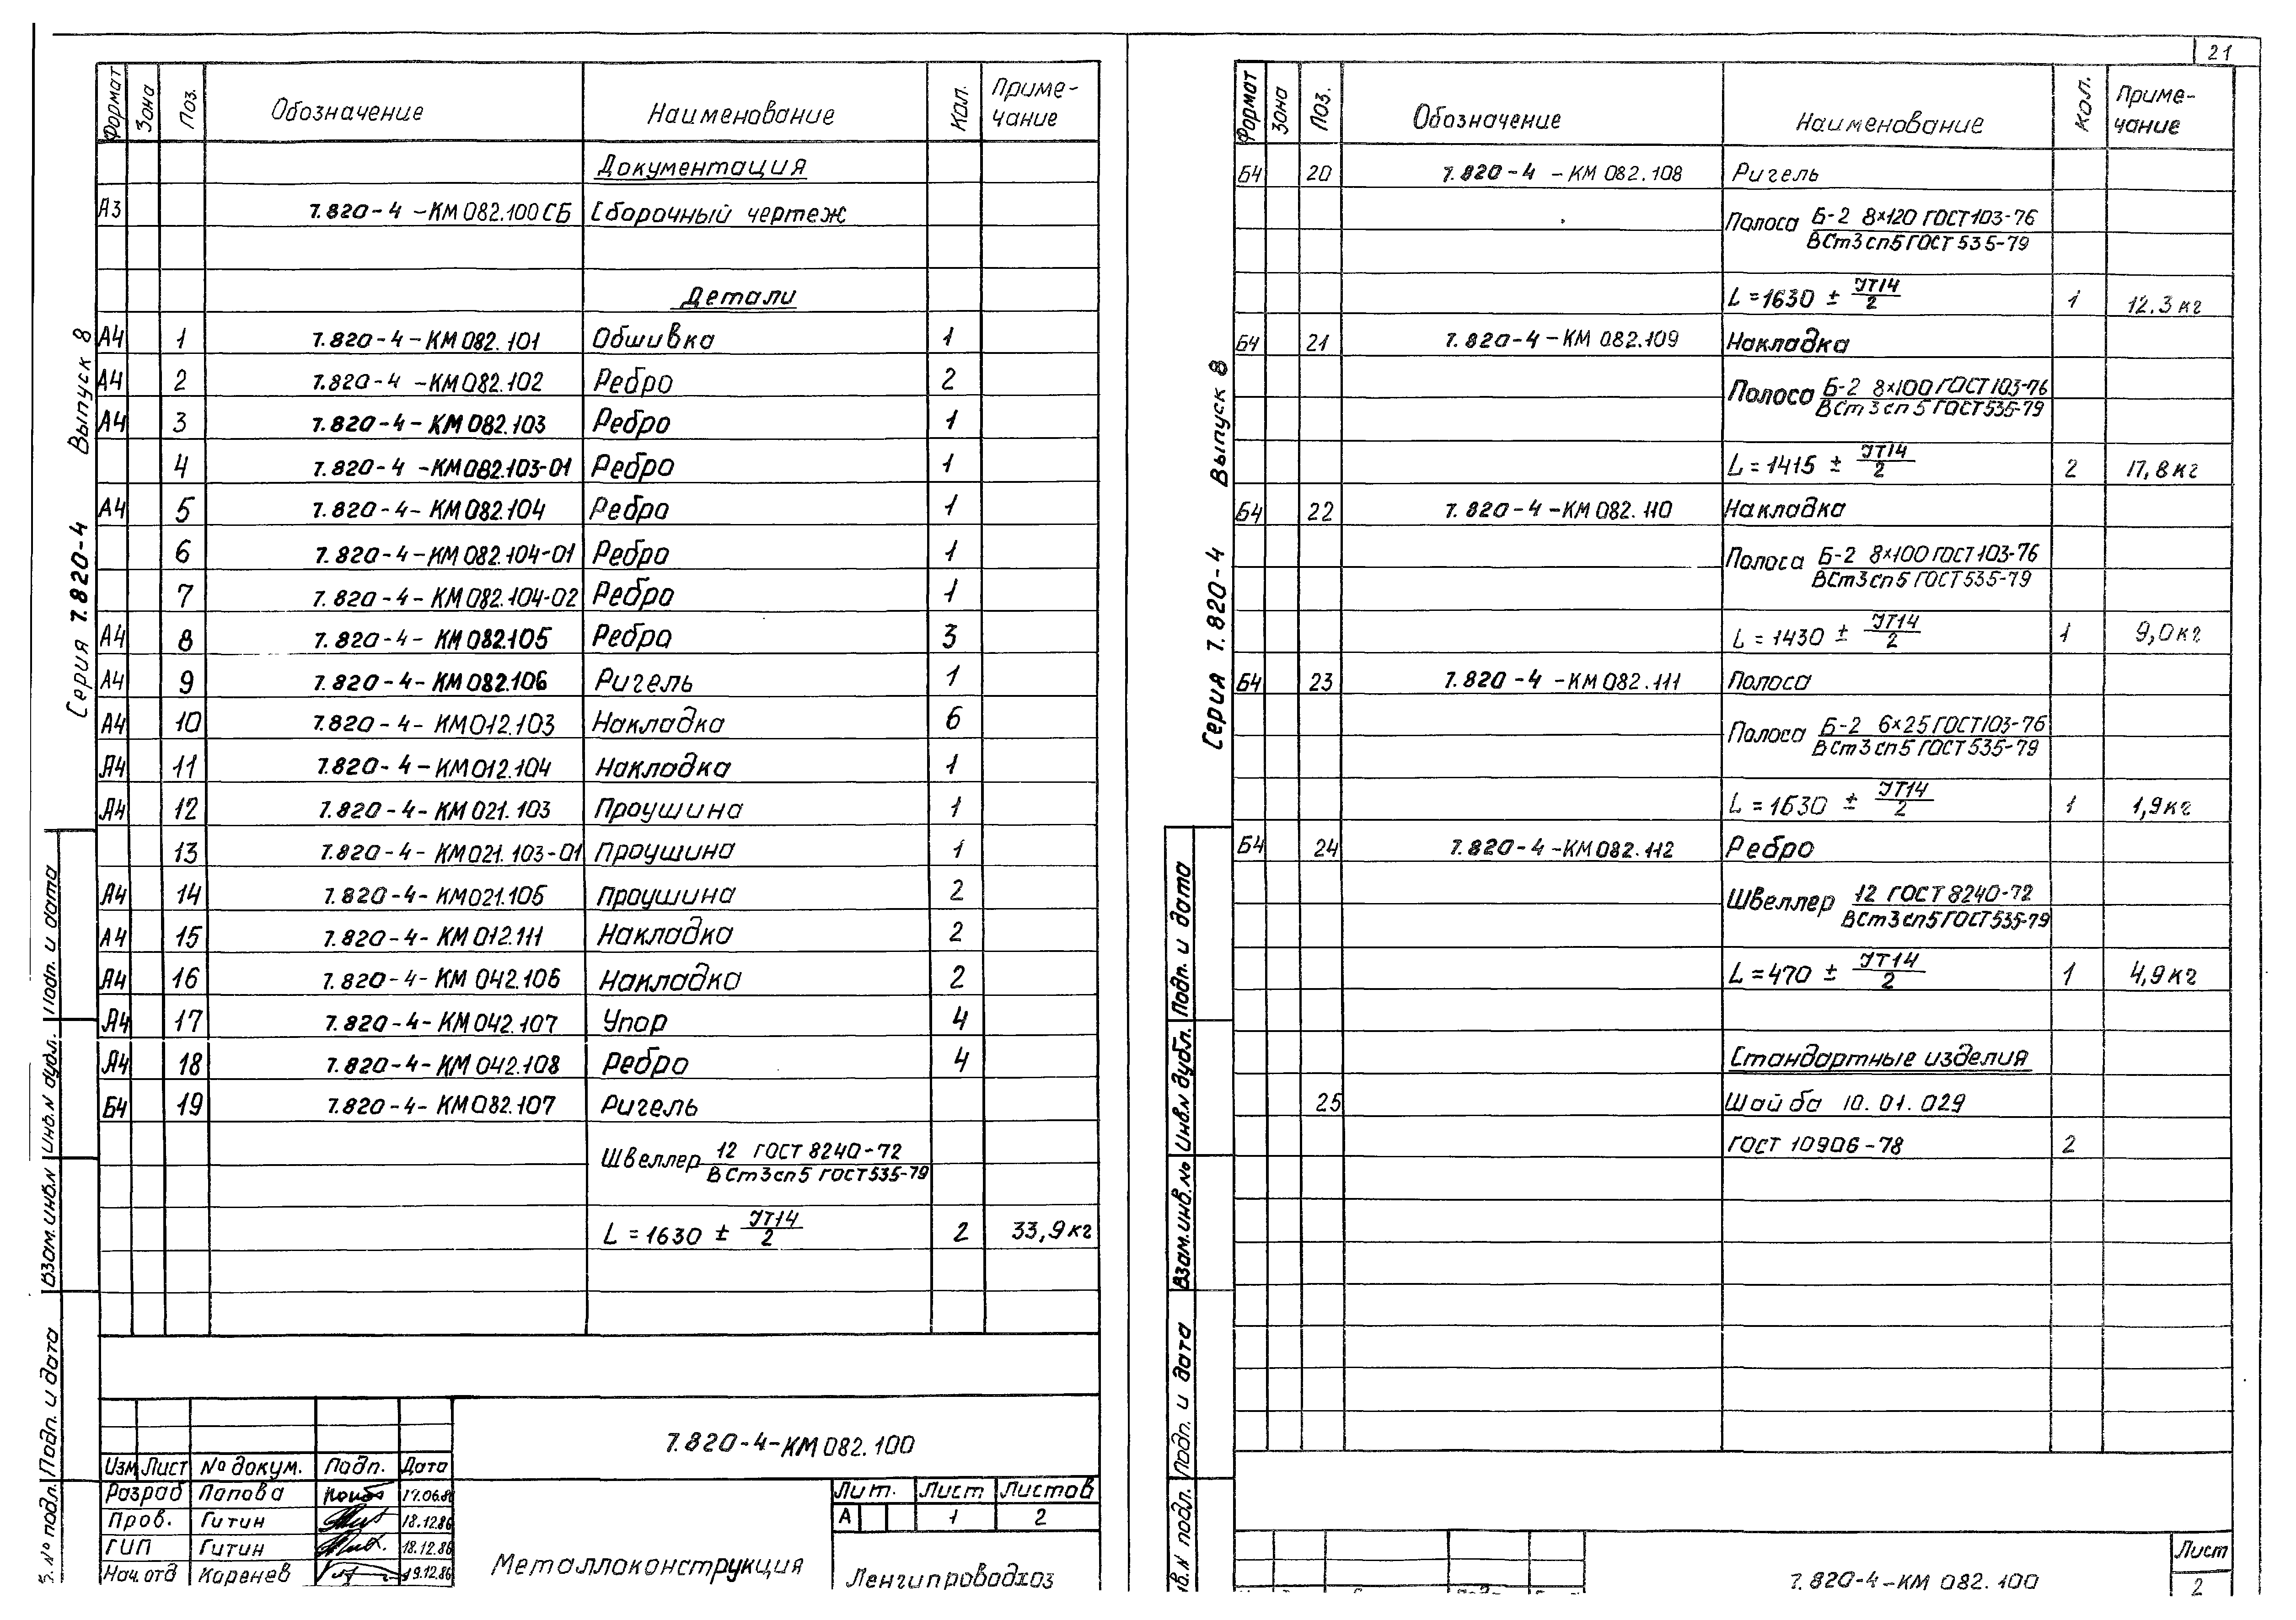 21
Формат Зона Поз. Обозначение Наименование Кол. Приме-
чание
Документация
А3 7.820-4-КМ082.100СБ Сборочный чертеж
Детали
А4 1 7.820-4-КМ082.101 Обшивка 1
А4 2 7.820-4-КМ082.102 Ребро 2
А4 3 7.820-4-КМ082.103 Ребро 1
4 7.820-4-КМ082.103-01 Ребро 1
А4 5 7.820-4-КМ082.104 Ребро 1
6 7.820-4-КМ082.104-01 Ребро 1
7 7.820-4-КМ082.104-02 Ребро 1
А4 8 7.820-4-КМ082.105 Ребро 3
А4 9 7.820-4-КМ082.106 Ригель 1
А4 10 7.820-4-КМ012.103 Накладка 6
А4 11 7.820-4-КМ012.104 Накладка 1
А4 12 7.820-4-КМ021.103 Проушина 1
13 7.820-4-КМ021.103-01 Проушина 1
А4 14 7.820-4-КМ021.105 Проушина 2
А4 15 7.820-4-КМ012.111 Накладка 2
А4 16 7.820-4-КМ042.106 Накладка 2
А4 17 7.820-4-КМ042.107 Упор 4
А4 18 7.820-4-КМ042.108 Ребро 4
Б4 19 7.820-4-КМ082.107 Ригель
Швеллер 12 ГОСТ 8240-72
ВСт3сп5 ГОСТ535-79
L=1630 ± JT14/2 2 33,9кг
Серия 7.820-4 Выпуск 8
Подп. и дата
Инв.N дубл.
Взам.инв.N
Подп. и дата
N° подл.
7.820-4-КМ082.100
Изм Лист N° докум. Подп. Дата
Разраб Попова 17.06.86
Пров. Гитин 18.12.86
ГИП Гитин 18.12.86
Нач.отд Коренев 19.12.86
Металлоконструкция
Лит. Лист Листов
А 1 2
Ленгипроводхоз
Формат Зона Поз. Обозначение Наименование Кол. Приме-
чание
Б4 20 7.820-4-КМ082.108 Ригель
Полоса Б-2 8×120 ГОСТ103-76
ВСт3сп5ГОСТ535-79
L=1630 ± JT14/2 1 12.3кг
Б4 21 7.820-4-КМ082.109 Накладка
Полоса Б-2 8×100ГОСТ103-76
ВСт3сп5ГОСТ535-79
L=1415 ± JT14/2 2 17,8кг
Б4 22 7.820-4-КМ082.110 Накладка
Полоса Б-2 8×100ГОСТ103-76
ВСт3сп5ГОСТ535-79
L=1430 ± JT14/2 1 9,0кг
Б4 23 7.820-4-КМ082.111 Полоса
Полоса Б-2 6×25ГОСТ103-76
ВСт3сп5ГОСТ535-79
L=1630 ± JT14/2 1 1,9кг
Б4 24 7.820-4-КМ082.112 Ребро
Швеллер 12 ГОСТ 8240-72
ВСт3сп5ГОСТ535-79
L=470 ± JT14/2 1 4,9кг
Стандартные изделия
25 Шайба 10.01.029
ГОСТ 10906-78 2
Серия 7.820-4 Выпуск 8
Подп. и дата
Инв.N дубл.
Взам.инв.N°
Подп. и дата
N подл.
7.820-4-КМ082.100
Лист
2